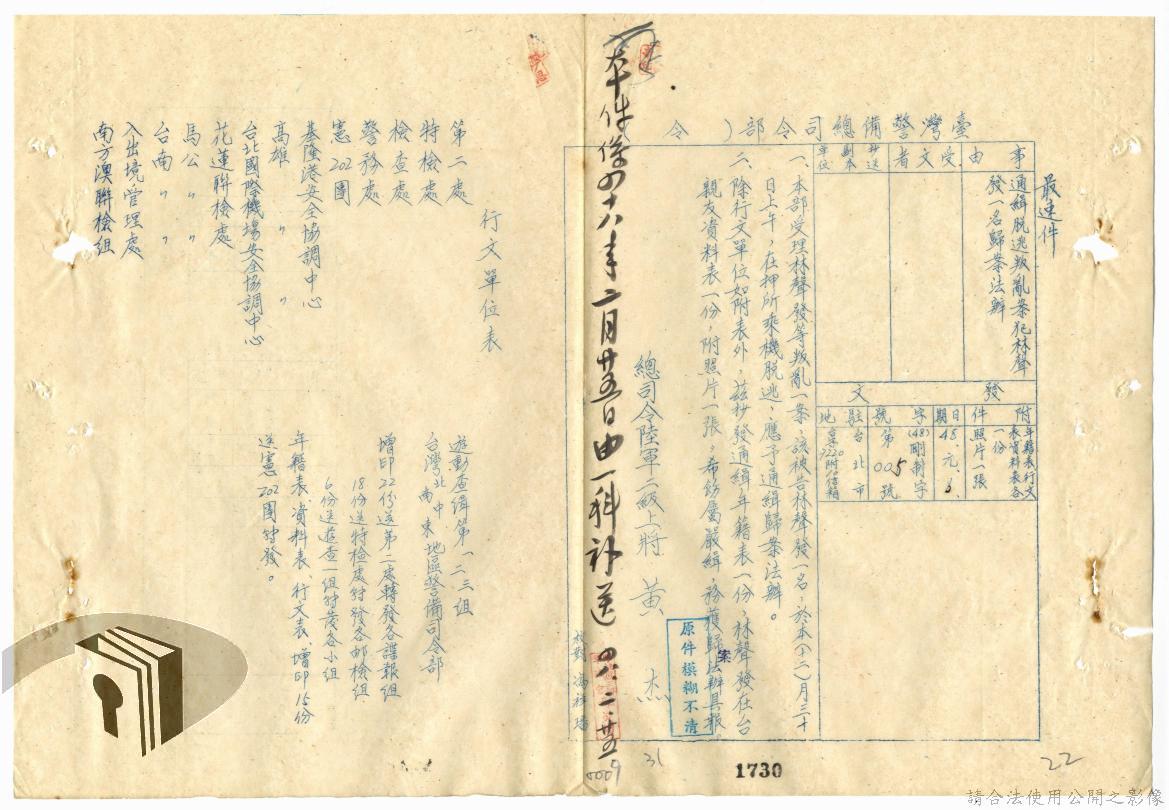 最速件
臺灣警備總司令部（　）令
事由
通緝脫逃叛亂案犯林聲
發一名歸案法辦
受文者
抄送副本單位
發文
附件
年籍表行文
表資料表各
一份
照片一張
日期
48.元.6.
字號
(48)剛制字
第005號
駐地
台北市
7220附16信箱
一、本部受理林聲發等叛亂一案，該被告林聲發一名，於本（十二）月三十
日上午，在押所乘機脫逃，應予通緝歸案法辦。
二、除行文單位如附表外，茲抄發通緝年籍表一份，林聲發在台
親友資料表一份，附照片一張，希飭屬嚴緝，務獲歸案法辦具報。
總司令陸軍二級上將 黃 杰
原件模糊不清
校對
本件係四十八年二月廿五日由一科補送 四八.二.廿五
行文單位表
第二處
特檢處
檢查處
警務處
憲202團
基隆港安全協調中心
高雄 〃 〃
台北國際機場安全協調中心
花蓮聯檢處
馬公 〃
台南 〃 〃
入出境管理處
南方澳聯檢組
遊動查緝第一二三組
台灣北中南東地區警備司令部
增印22份送第二處轉發各諜報組
18份送特檢處轉發各郵檢組
6份送遊查一組轉發各小組
年籍表、資料表、行文表、增印15份
送憲202團轉發。
0009
31
1730
22
請合法使用公開之影像